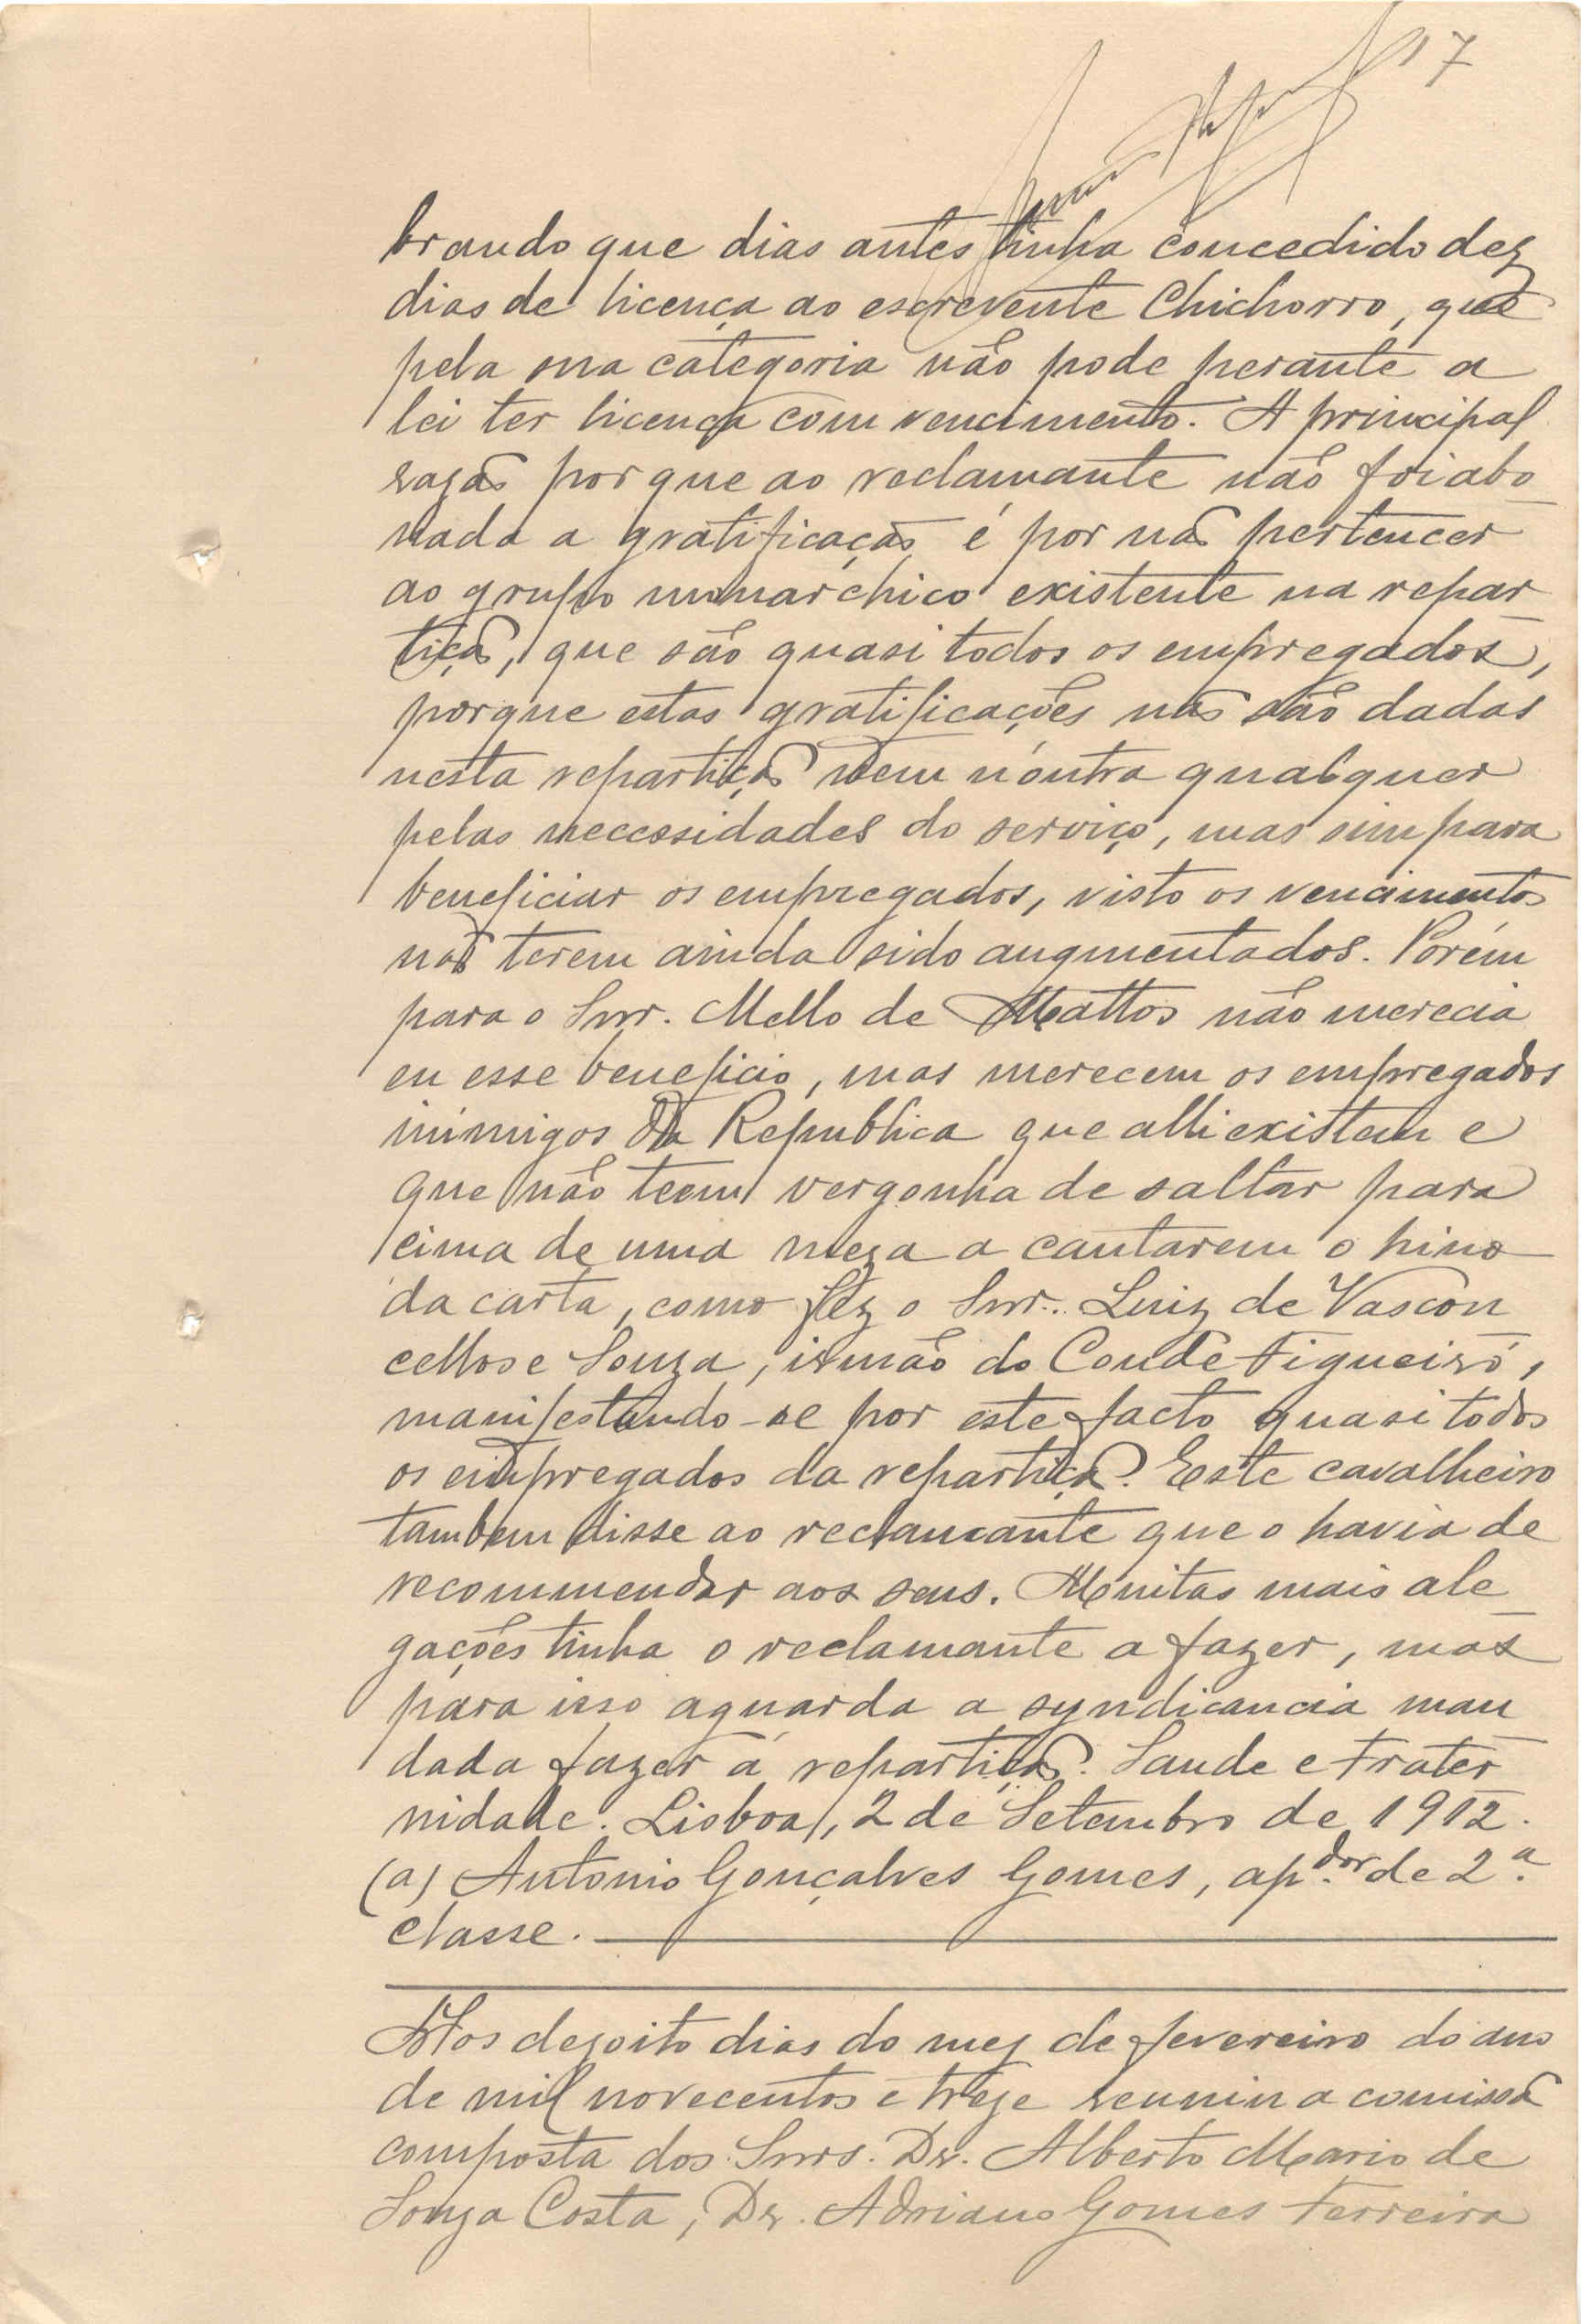 17
brando que dias antes tinha concedido dez
dias de licença ao escrevente Chichorro, que
pela sua categoria não pode perante a
lei ter licença com vencimento. A principal
razão porque ao reclamante não foi abo
nada a gratificação é por não pertencer
ao grupo monarchico existente na repar
tição, que são quasi todos os empregados,
porque estas gratificações não são dadas
nesta repartição nem n'outra qualquer
pelas necessidades do serviço, mas sim para
beneficiar os empregados, visto os vencimentos
não terem ainda sido augmentados. Porém
para o Snr. Mello de Mattos não merecia
eu esse beneficio, mas merecem os empregados
inimigos da Republica que alli existem e
que não teem vergonha de saltar para
cima de uma meza a cantarem o hino
da carta, como fez o Snr. Luiz de Vascon
cellos e Souza, irmão do Conde Figueiró,
manifestando-se por este facto quasi todos
os empregados da repartição. Este cavalheiro
tambem disse ao reclamante que o havia de
recommendar aos seus. Muitas mais ale
gações tinha o reclamante a fazer, mas
para isso aguarda a syndicancia man
dada fazer á repartição. Saude e Frater
nidade. Lisboa, 2 de Setembro de 1912.
(a) Antonio Gonçalves Gomes, ap.dor de 2.a
classe.
Aos dezoito dias do mez de fevereiro do ano
de mil novecentos e treze reuniu a comissão
composta dos Snrs. Dr. Alberto Mario de
Souza Costa, Dr. Adriano Gomes Ferreira